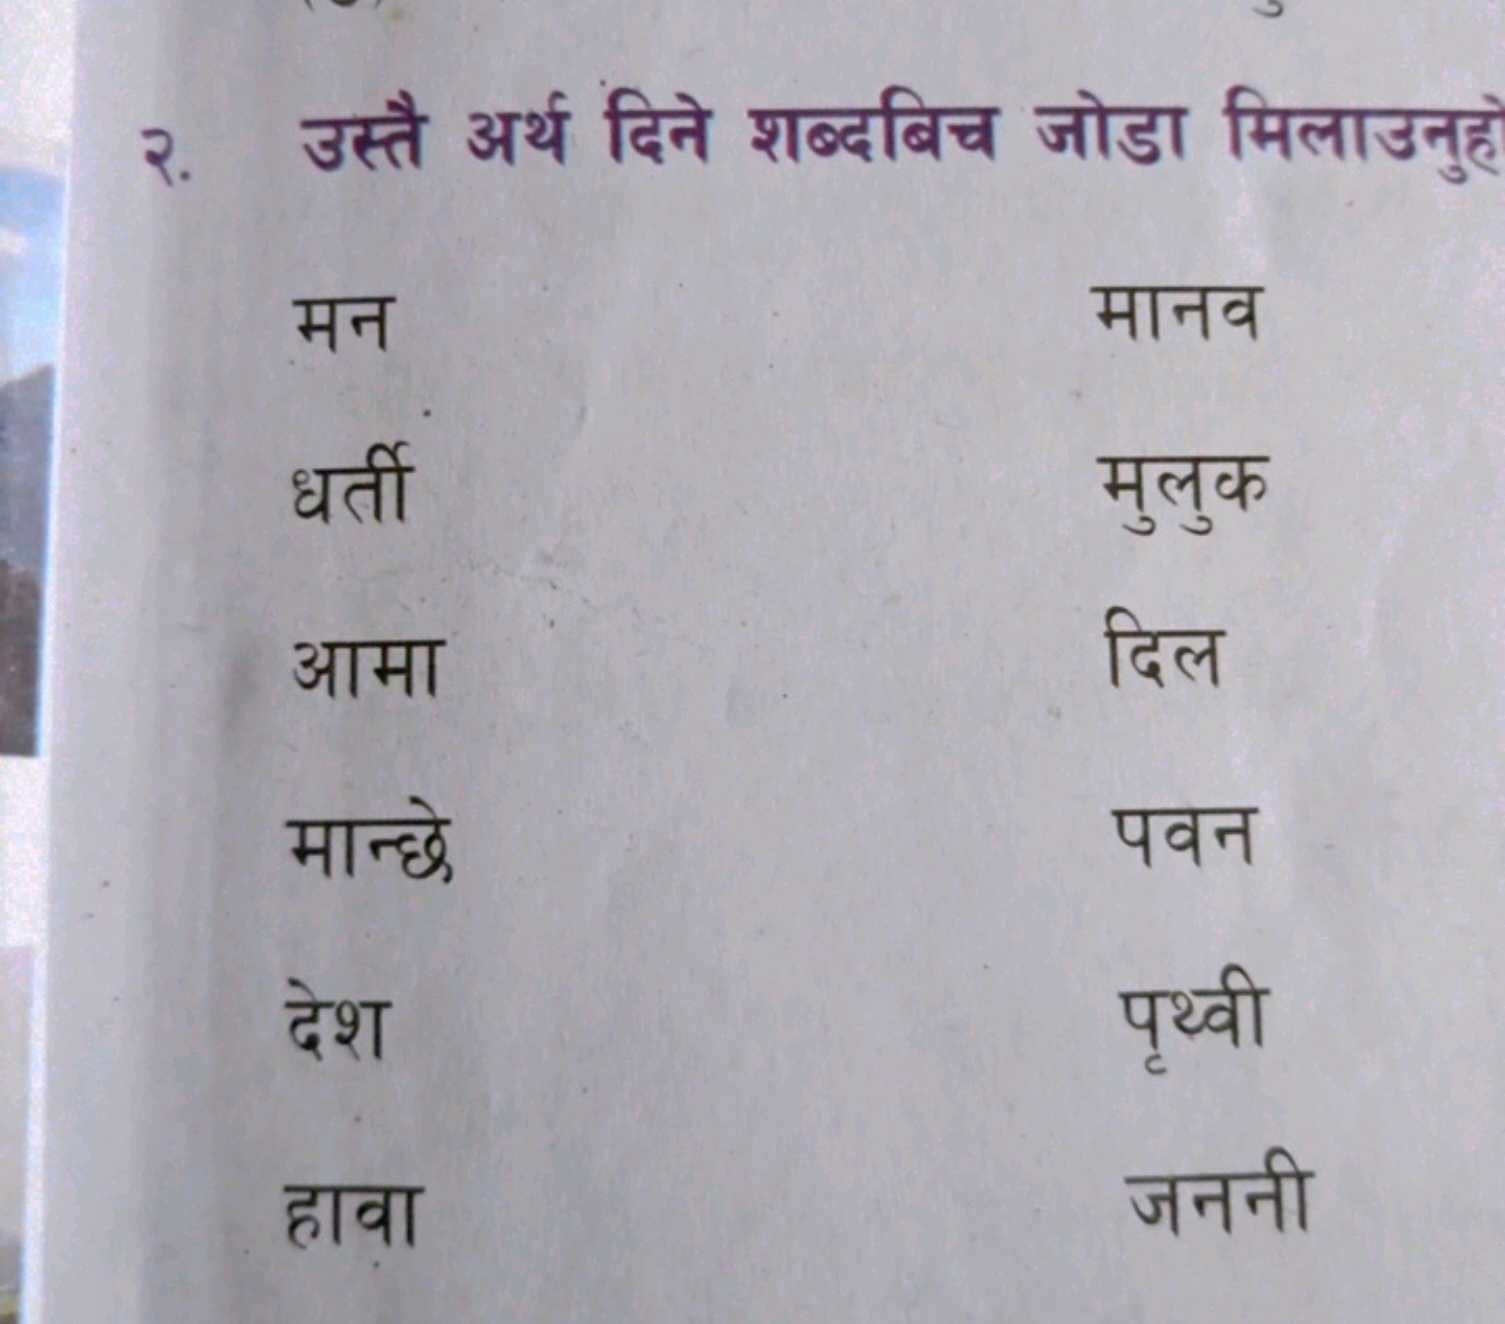 २. उस्तै अर्थ दिने शब्दबिच जोडा मिलाउनुहो
मन मानव
धर्ती मुलुक
आमा दिल
मान्छे पवन
देश पृथ्वी
हावा जननी